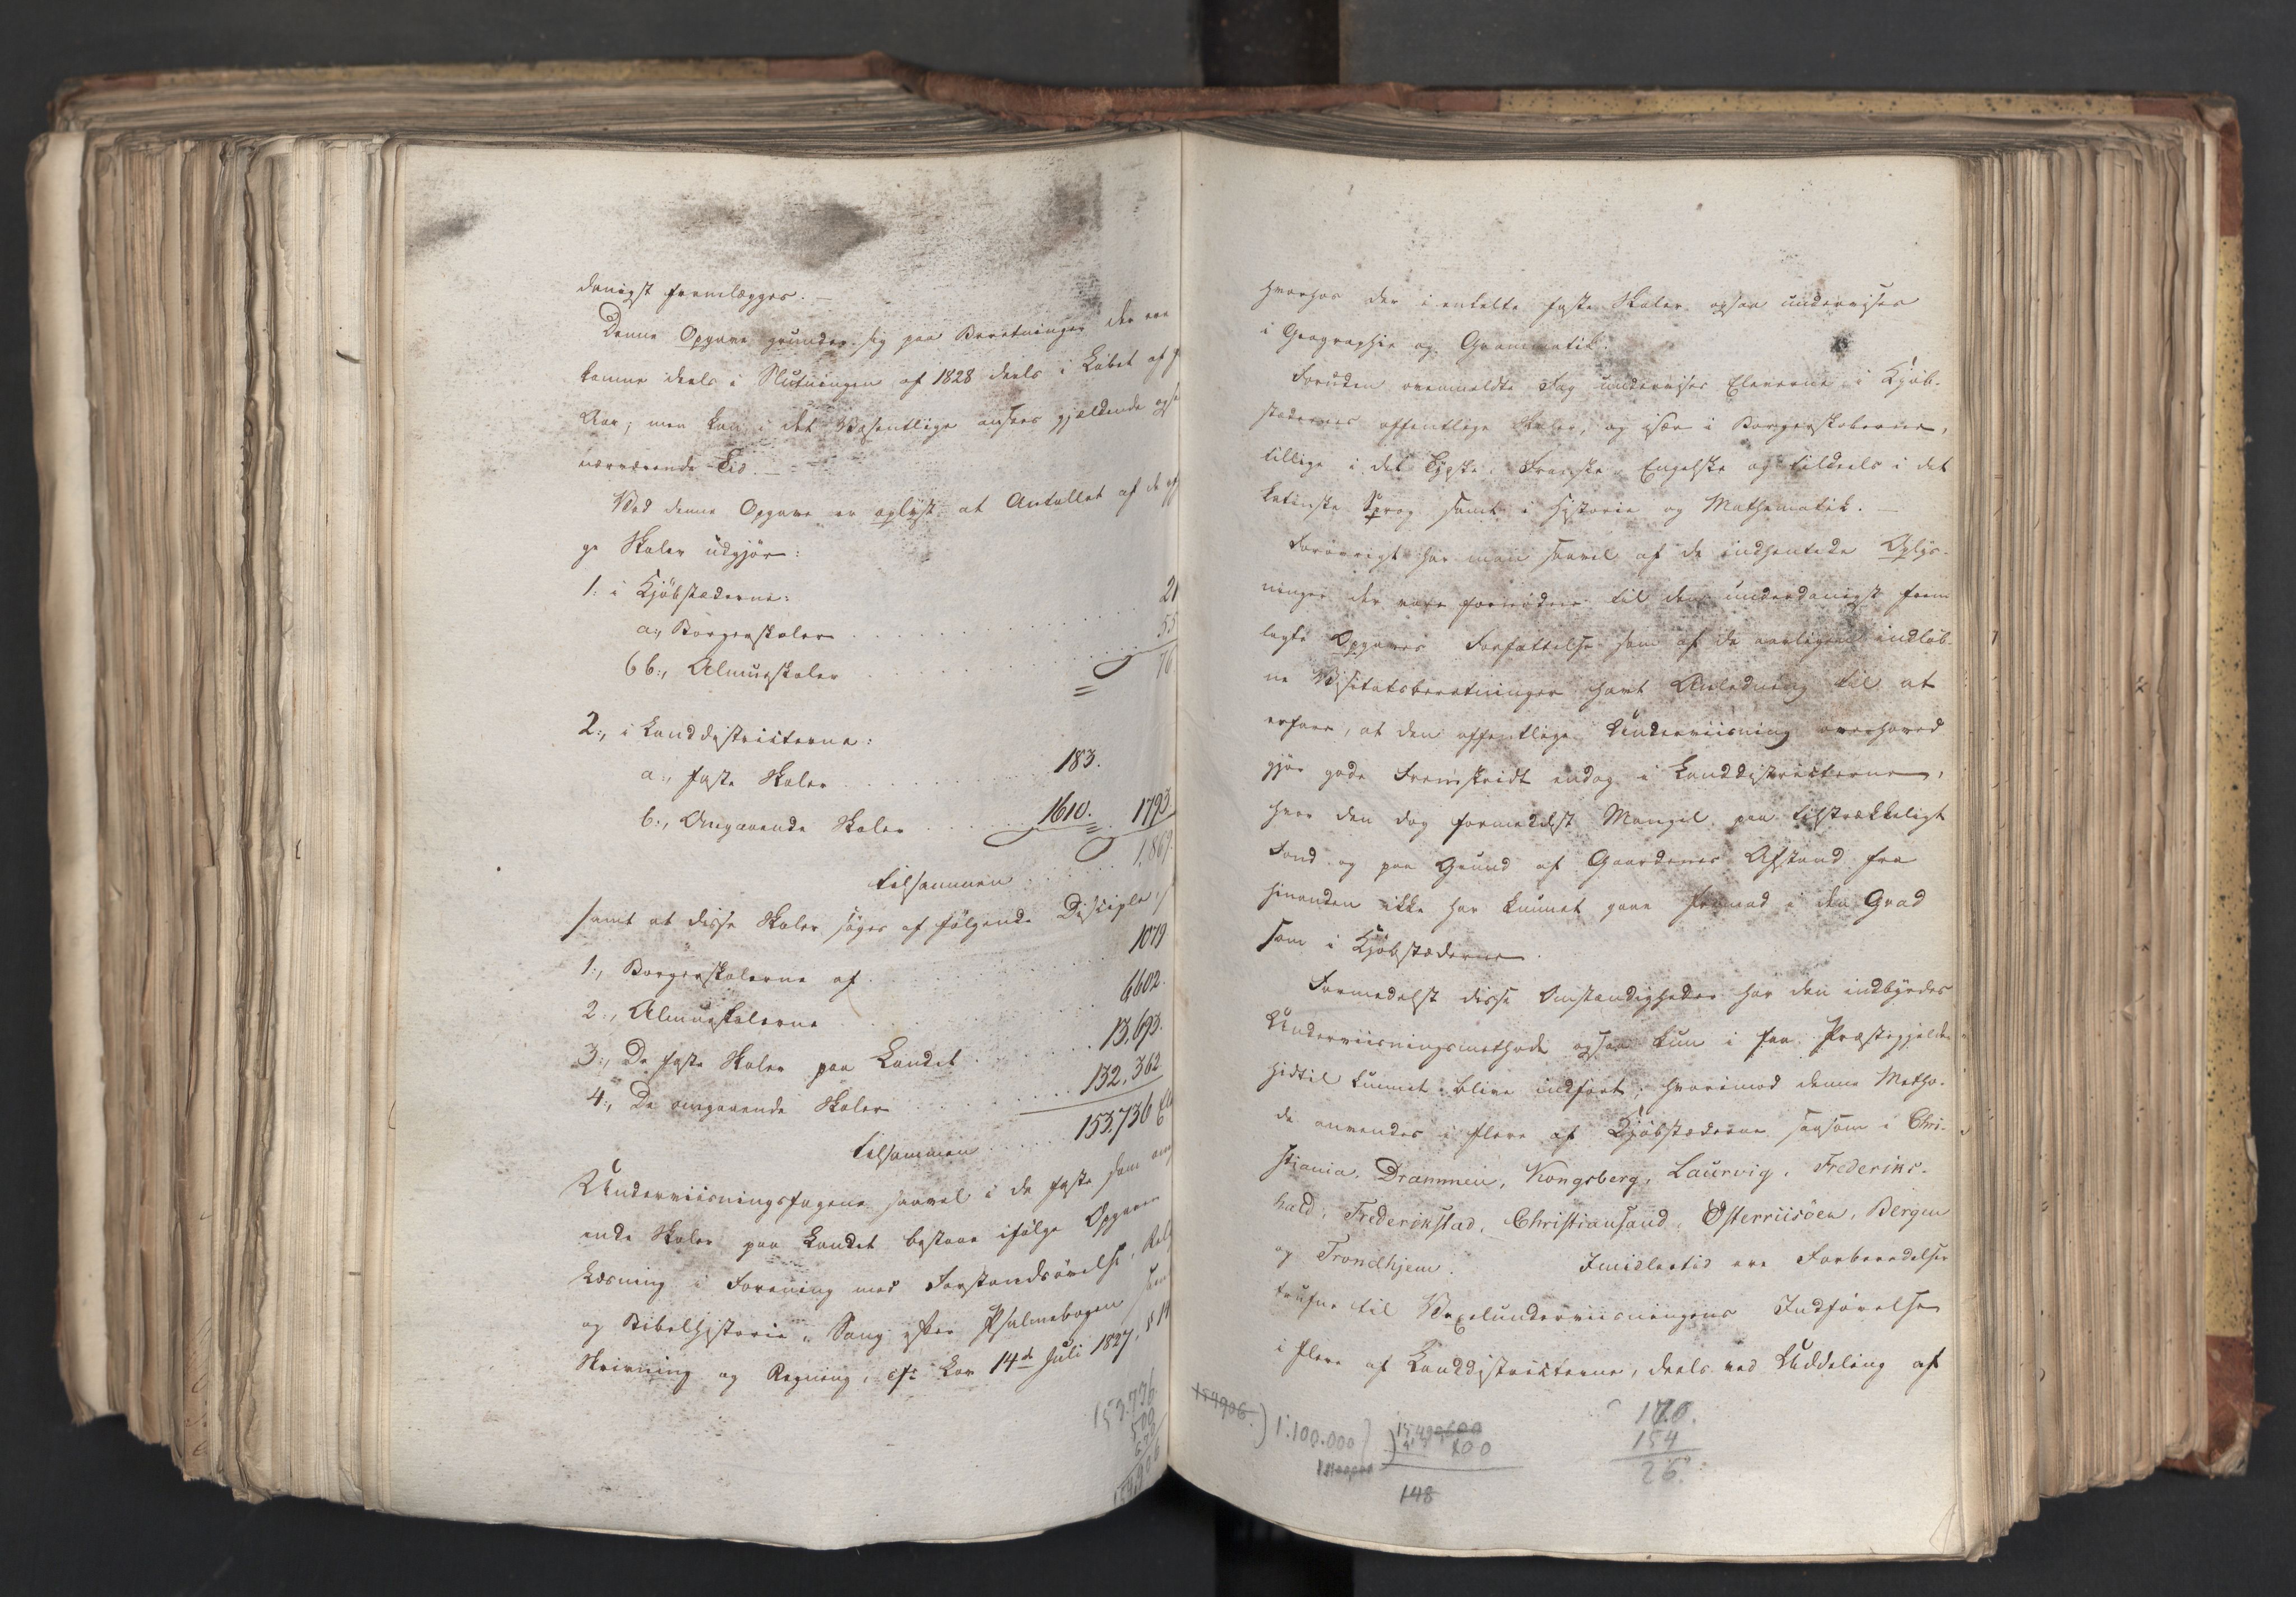 danigst fremlægges. —
Denne Opgave grunder sig paa Beretninger der ere
komne deels i Slutningen af 1828 deels i Løbet af
Aar; men kan i det Væsentlige ansees gjældende ogsaa
nærværende Tid. —
Ved denne Opgave er oplyst at Antallet af de
ge Skoler udgjør:
1: i Kjøbstæderne:
a:, Borgerskoler . . . 21
b:, Almueskoler . . . 55
76
2:, i Landdistricterne:
a:, faste Skoler . . . 183.
b:, Omgaaende Skoler . . . 1610. 1793
tilsammen . . . 1,869
samt at disse Skoler søges af følgende Disciple:
1:, Borgerskolerne af . . . 1079
2:, Almueskolerne . . . 6602.
3:, De faste Skoler paa Landet . . . 13,693.
4:, De omgaaende Skoler . . . 132,362
tilsammen . . . 153,736
Underviisningsfagene saavel i de faste som om
ende Skoler paa Landet bestaae ifølge Opgaven
Læsning i Forening med Forstandsøvelse, Rel
og Bibelhistorie, Sang efter Psalmebogen
Skrivning og Regning, cfr Lov 14de Juli 1827, § 14
153.736
hvorhos der i enkelte faste Skoler ogsaa undervises
i Geographie og Grammatik.
Foruden ovenmeldte Fag undervises Eleverne i Kjøb-
stædernes offentlige Skoler, og især i Borgerskolerne,
tillige i det Tydske, Franske, Engelske og tildeels i det
latinske Sprog samt i Historie og Mathematik. —
Forøvrigt har man saavel af de indhentede Oplys-
ninger der vare fornødne til den underdanigst frem
lagte Opgaves Forfattelse som af de aarligen indløb-
ne Visitatsberetninger havt Anledning til at
erfare, at den offentlige Underviisning overhoved
gjør gode Fremskridt endog i Landdistricterne,
hvor den dog formedelst Mangel paa tilstrækkeligt
Fond og paa Grund af Gaardenes Afstand fra
hinanden ikke har kunnet gaae fremad i den Grad
som i Kjøbstæderne.
Formedelst disse Omstændigheder har den indbyrdes
Underviisningsmethode ogsaa kun i faa Præstegjelde
hidtil kunnet blive indført; hvorimod denne Metho-
de anvendes i flere af Kjøbstæderne saasom i Chri-
stiania, Drammen, Kongsberg, Laurvig, Frederiks-
hald, Frederikstad, Christiansand, Østerriisöen, Bergen
og Trondhjem. Imidlertid ere Forberedelser
trufne til Vexelunderviisningens Indførelse
i flere af Landdistricterne, deels ved Uddeling af
154906.) 1.100.000
148
170.
154
26.